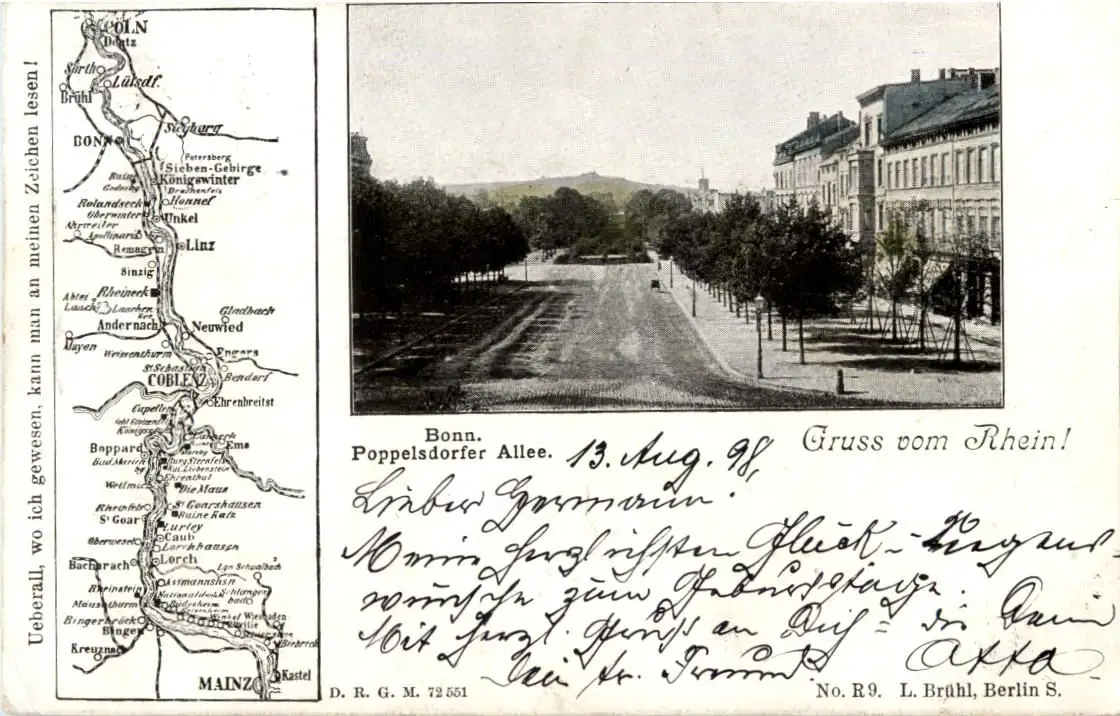 Ueberall, wo ich gewesen, kann man an meinen Zeichen lesen!
CÖLN
Deutz
Sürth
Lülsdf.
Brühl
Siegburg
BONN
Petersberg
Sieben-Gebirge
Ruine Godesbg
Königswinter
Drachenfels
Rolandseck
Honnef
Oberwinter
Unkel
Ahrweiler
Apollinaris
Remagen
Linz
Sinzig
Rheineck
Abtei Laach
Laacher See
Gladbach
Andernach
Neuwied
Mayen
Weissenthurm
Engers
St Sebastian
Bendorf
COBLENZ
Ehrenbreitst.
Capellen
Ems
Boppard
Burg Sternfels
Bad Marienbg
Rui. Liebenstein
Ehrenthal
Wellmich
Die Maus
Rheinfels
St Goarshausen
St Goar
Ruine Katz
Lurley
Oberwesel
Caub
Lorchhausen
Bacharach
Lorch
Lgn Schwalbach
Rheinstein
Assmannshsn
Nationaldenkm
Schlangenbad
Mäusethurm
Rüdesheim
Bingerbrück
Wiesbaden
Bingen
Biebrich
Kreuznach
Kastel
MAINZ
Bonn.
Poppelsdorfer Allee.
Gruss vom Rhein!
13. Aug. 98,
Lieber Germann!
Meine herzlichsten Glück- & Segens-
wünsche zum Geburtstage.
Mit herzl. Gruß an Dich & die Deinen
Dein tr. Freund Otto
D. R. G. M. 72551
No. R9. L. Brühl, Berlin S.